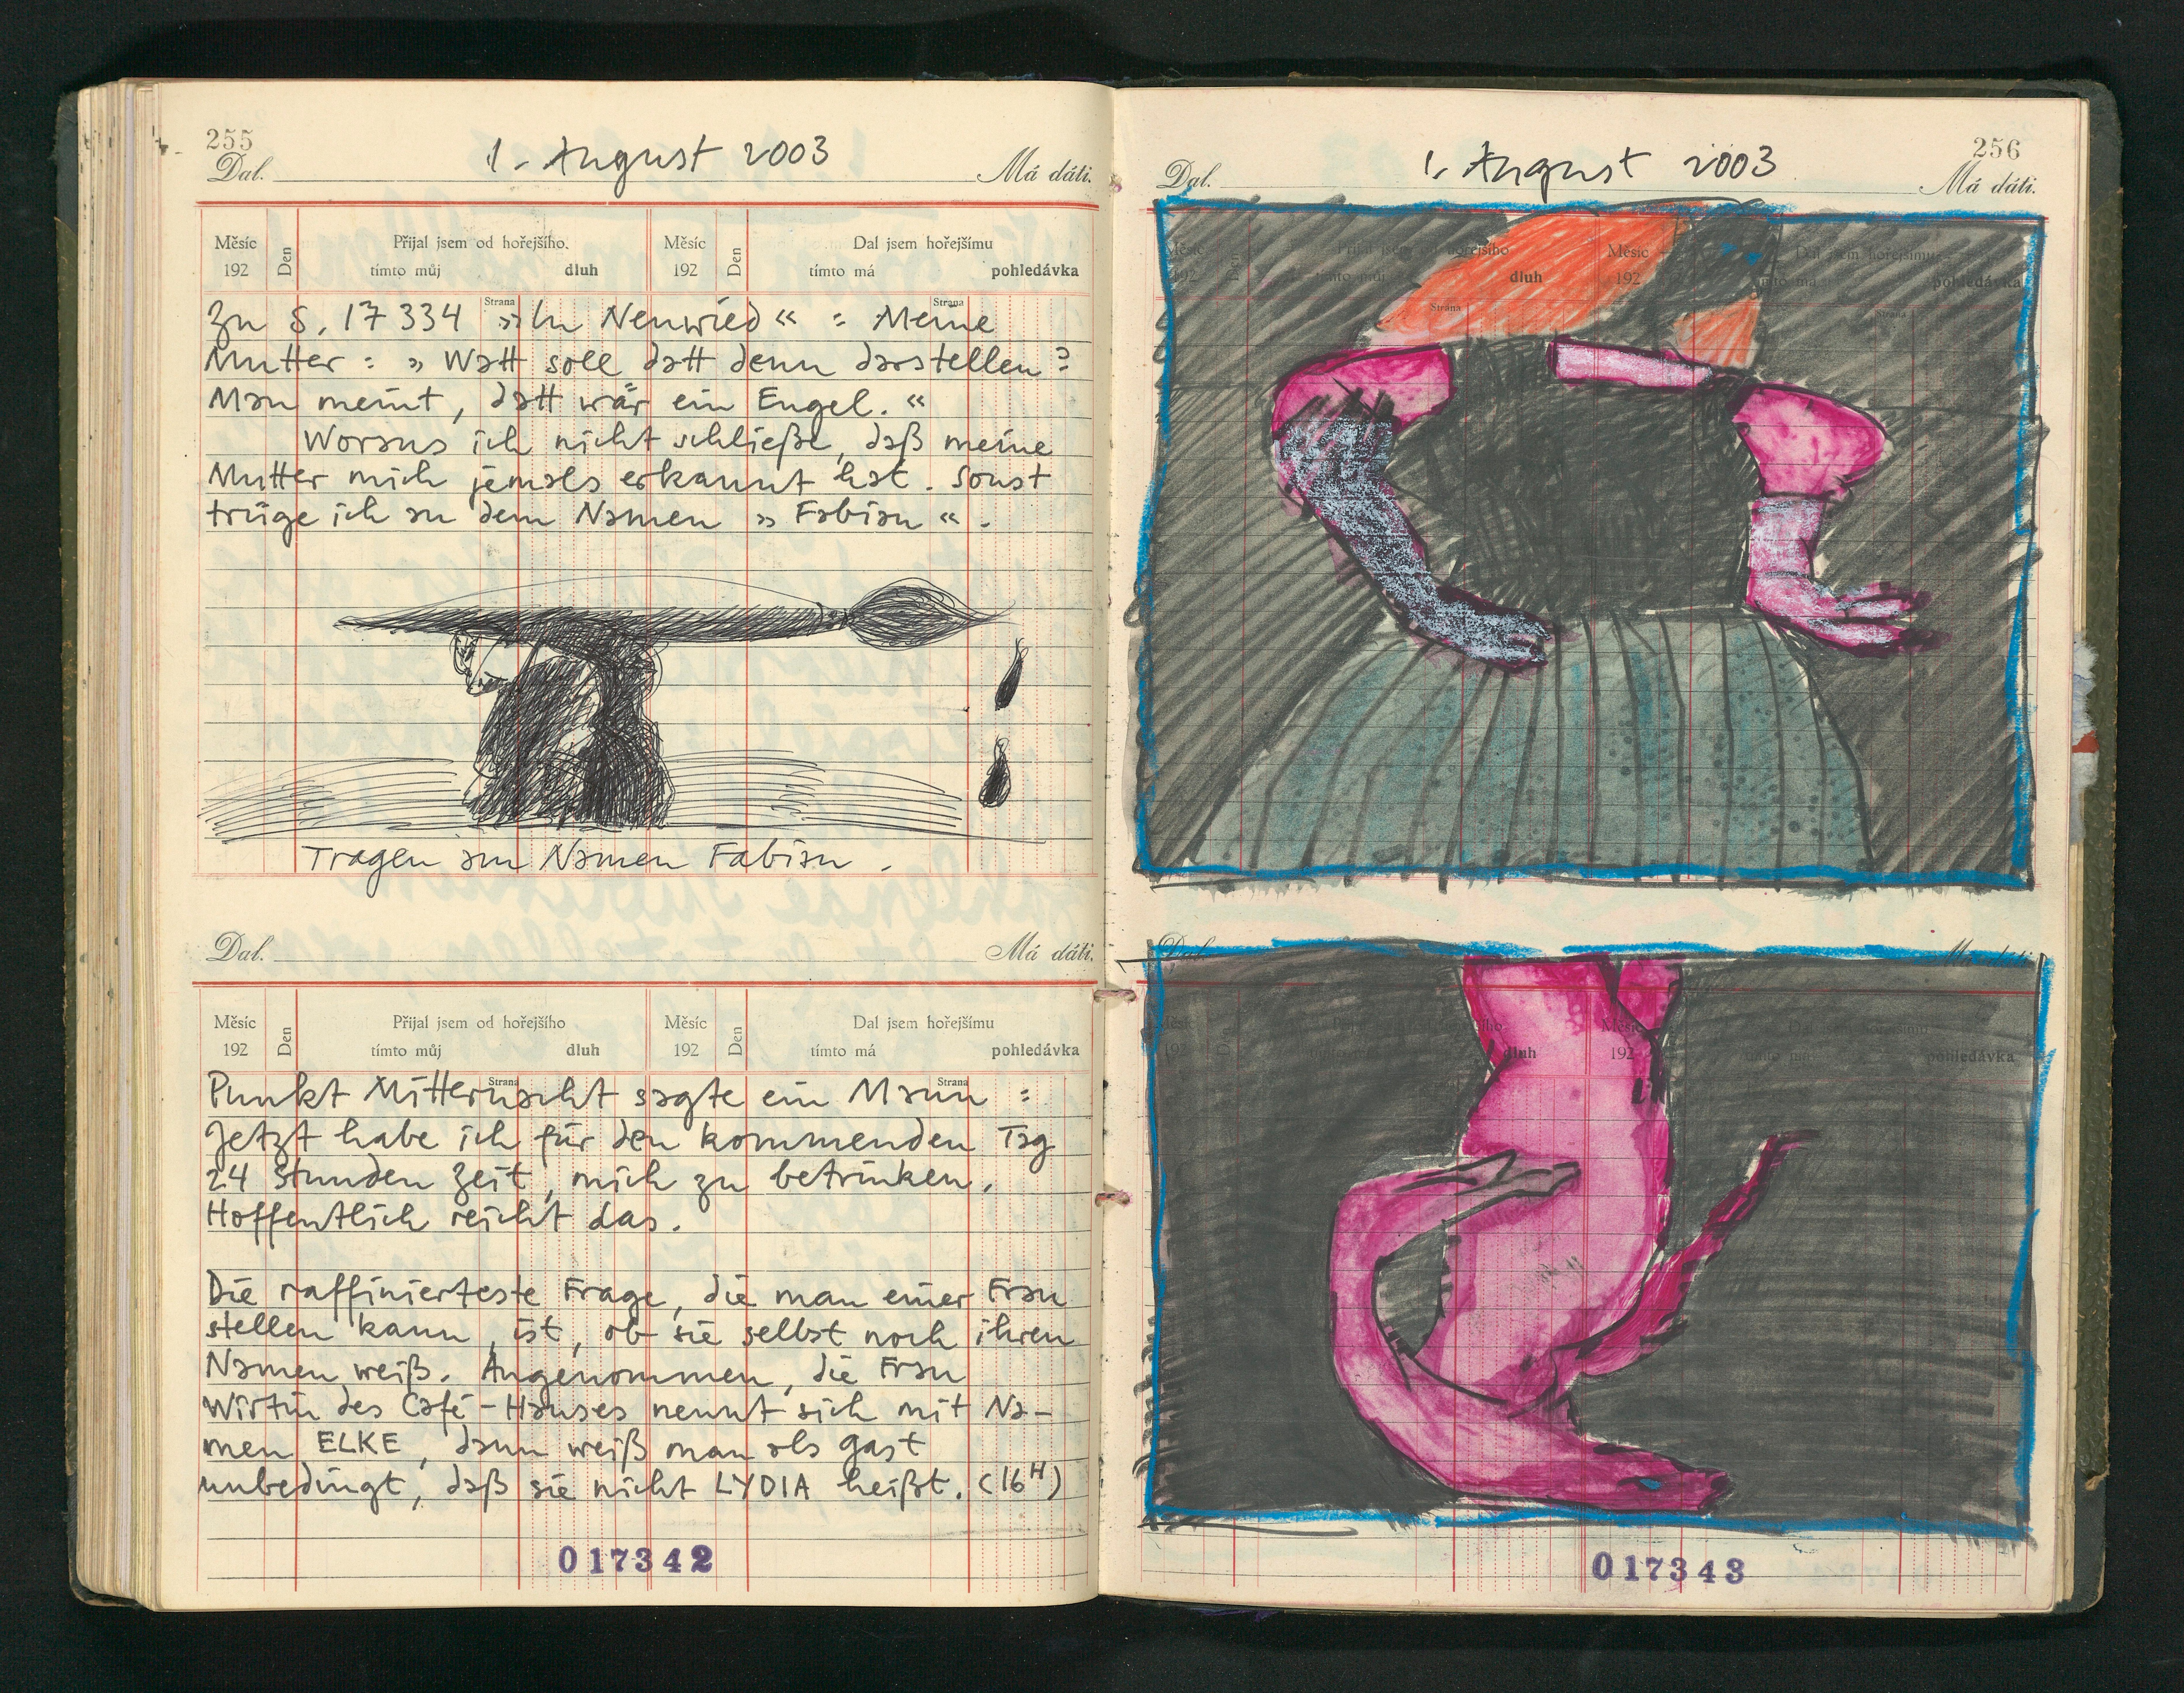 255
1. August 2003
Dal. Má dáti.
Měsíc Den Přijal jsem od hořejšího. Měsíc Den Dal jsem hořejšímu
192 tímto můj dluh 192 tímto má pohledávka
Strana Strana
Zu S. 17334 »In Neuwied« : Meine
Mutter : » Watt soll datt denn darstellen?
Man meint, datt wär ein Engel.«
Woraus ich nicht schließe, daß meine
Mutter mich jemals erkannt hat. Sonst
trüge ich an dem Namen »Fabian«.
Tragen am Namen Fabian.
Dal. Má dáti.
Měsíc Den Přijal jsem od hořejšího Měsíc Den Dal jsem hořejšímu
192 tímto můj dluh 192 tímto má pohledávka
Strana Strana
Punkt Mitternacht sagte ein Mann :
Jetzt habe ich für den kommenden Tag
24 Stunden Zeit, mich zu betrinken.
Hoffentlich reicht das.
Die raffinierteste Frage, die man einer Frau
stellen kann, ist, ob sie selbst noch ihren
Namen weiß. Angenommen, die Frau
Wirtin des Café-Hauses nennt sich mit Na-
men ELKE, dann weiß man als Gast
unbedingt, daß sie nicht LYDIA heißt. (16H)
017342
256
1. August 2003
Dal. Má dáti.
Měsíc Den Přijal jsem hořejšího Měsíc Dal jsem hořejšímu
192 tímto můj dluh 192 tímto má pohledávka
Strana Strana
Dal. Má dáti.
Měsíc Den Měsíc
192 dluh 192 tímto má pohledávka
017343